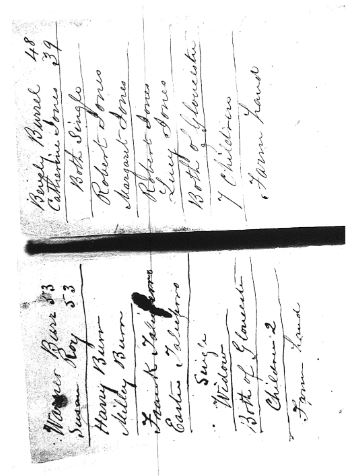 Beverly Burrel 48
Catherine Jones 39
Both Single
Robert Jones
Margaret Jones
Robert Jones
Lucy Jones
Both of Gloucester
7 Children
Farm hand
Warner Burr 53
Susan Roy 53
Harry Burr
Milley Burr
Frank Taliferro
Taliferro
Single
Widow
Both of Gloucester
Children 2
Farm hand